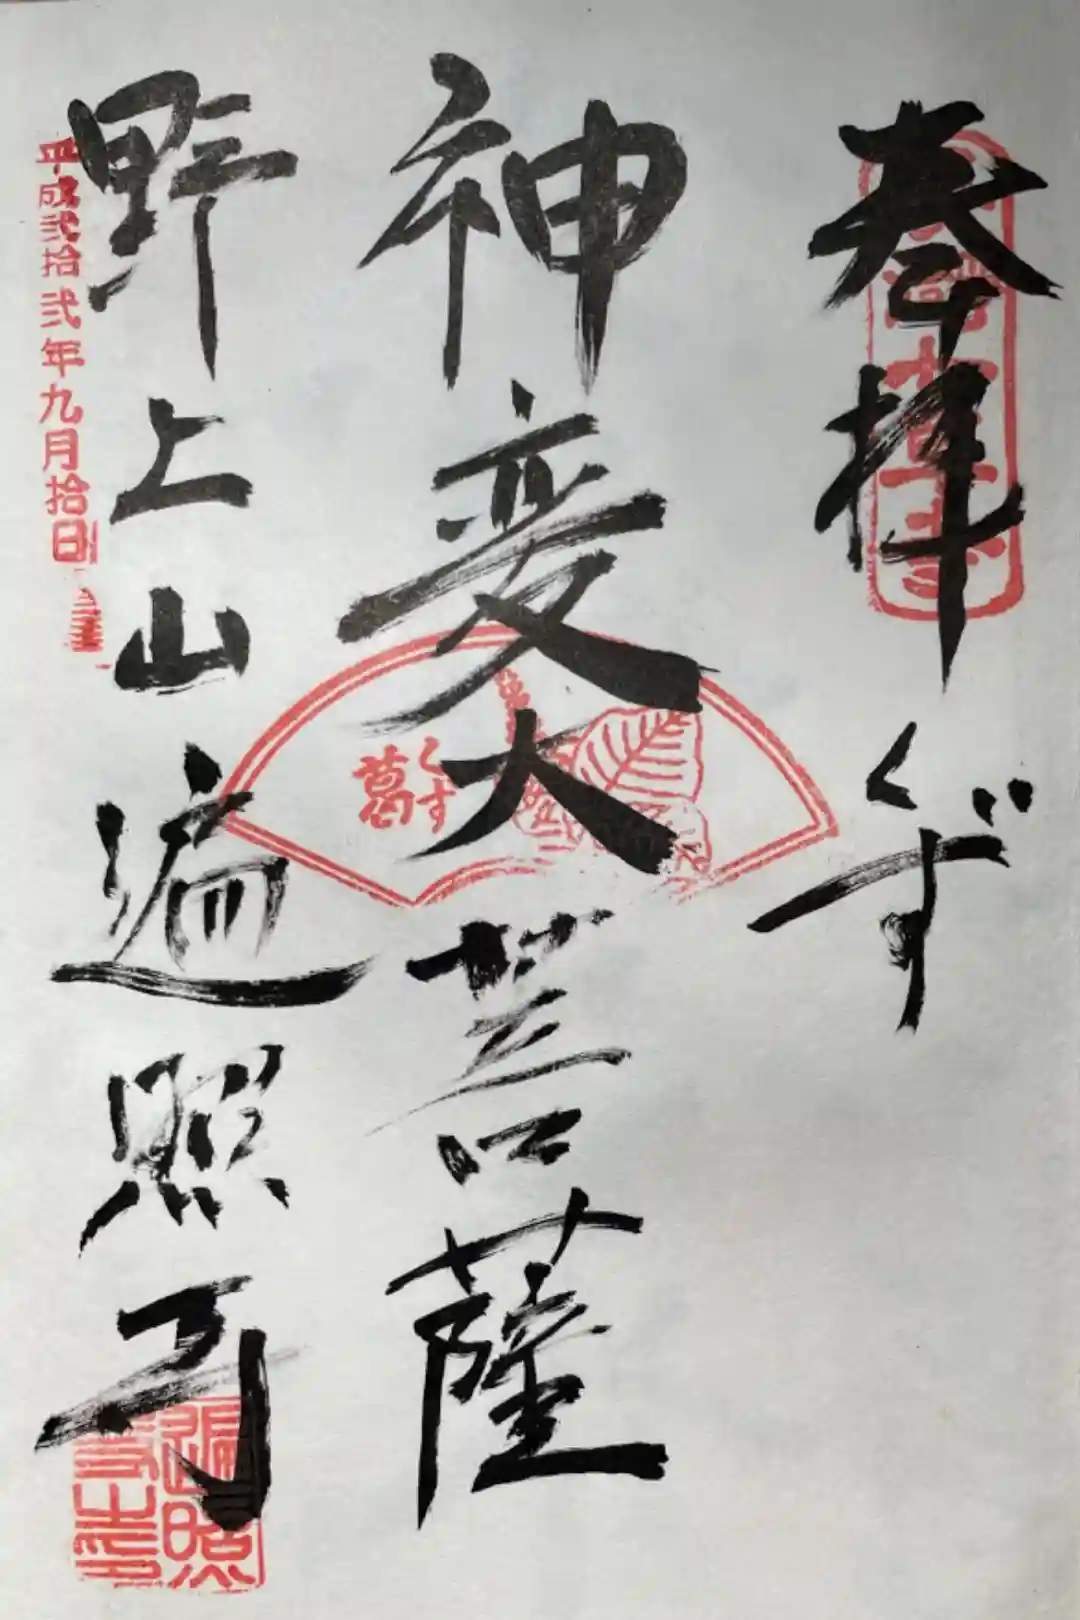 奉拝
くず
神変大菩薩
くず
葛
野上山
遍照寺
平成弐拾弐年九月拾日
遍照
寺之印